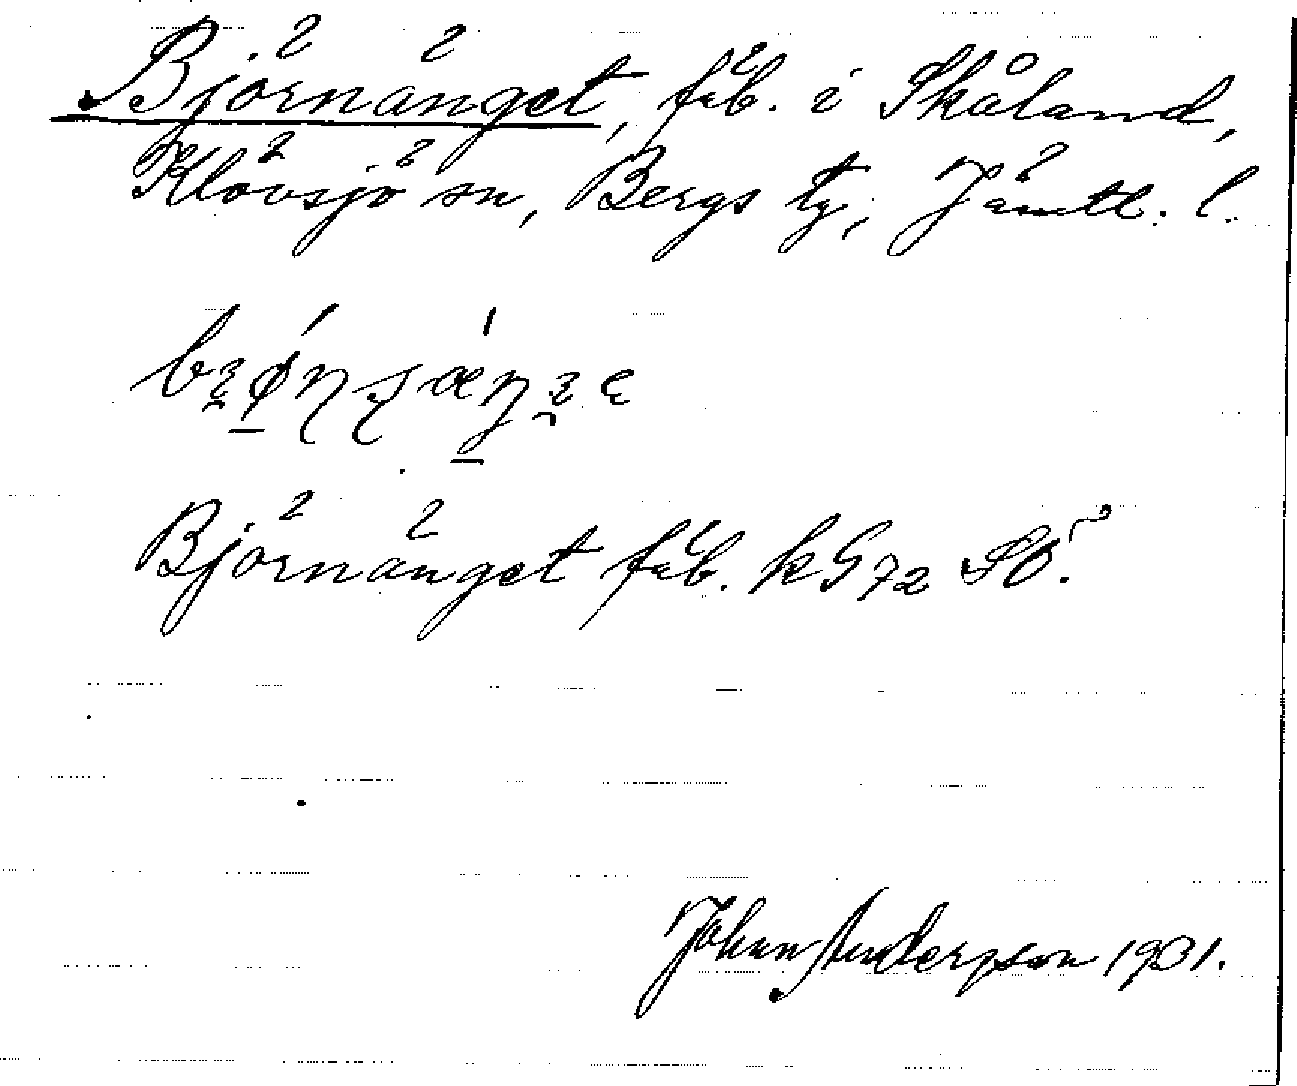 Björnänget, fäb. i Skåland,
Klövsjö sn, Bergs tg, Jämtl. l.
Björnänget fäb. kG72 SO.
Johan Anderpson 1931.